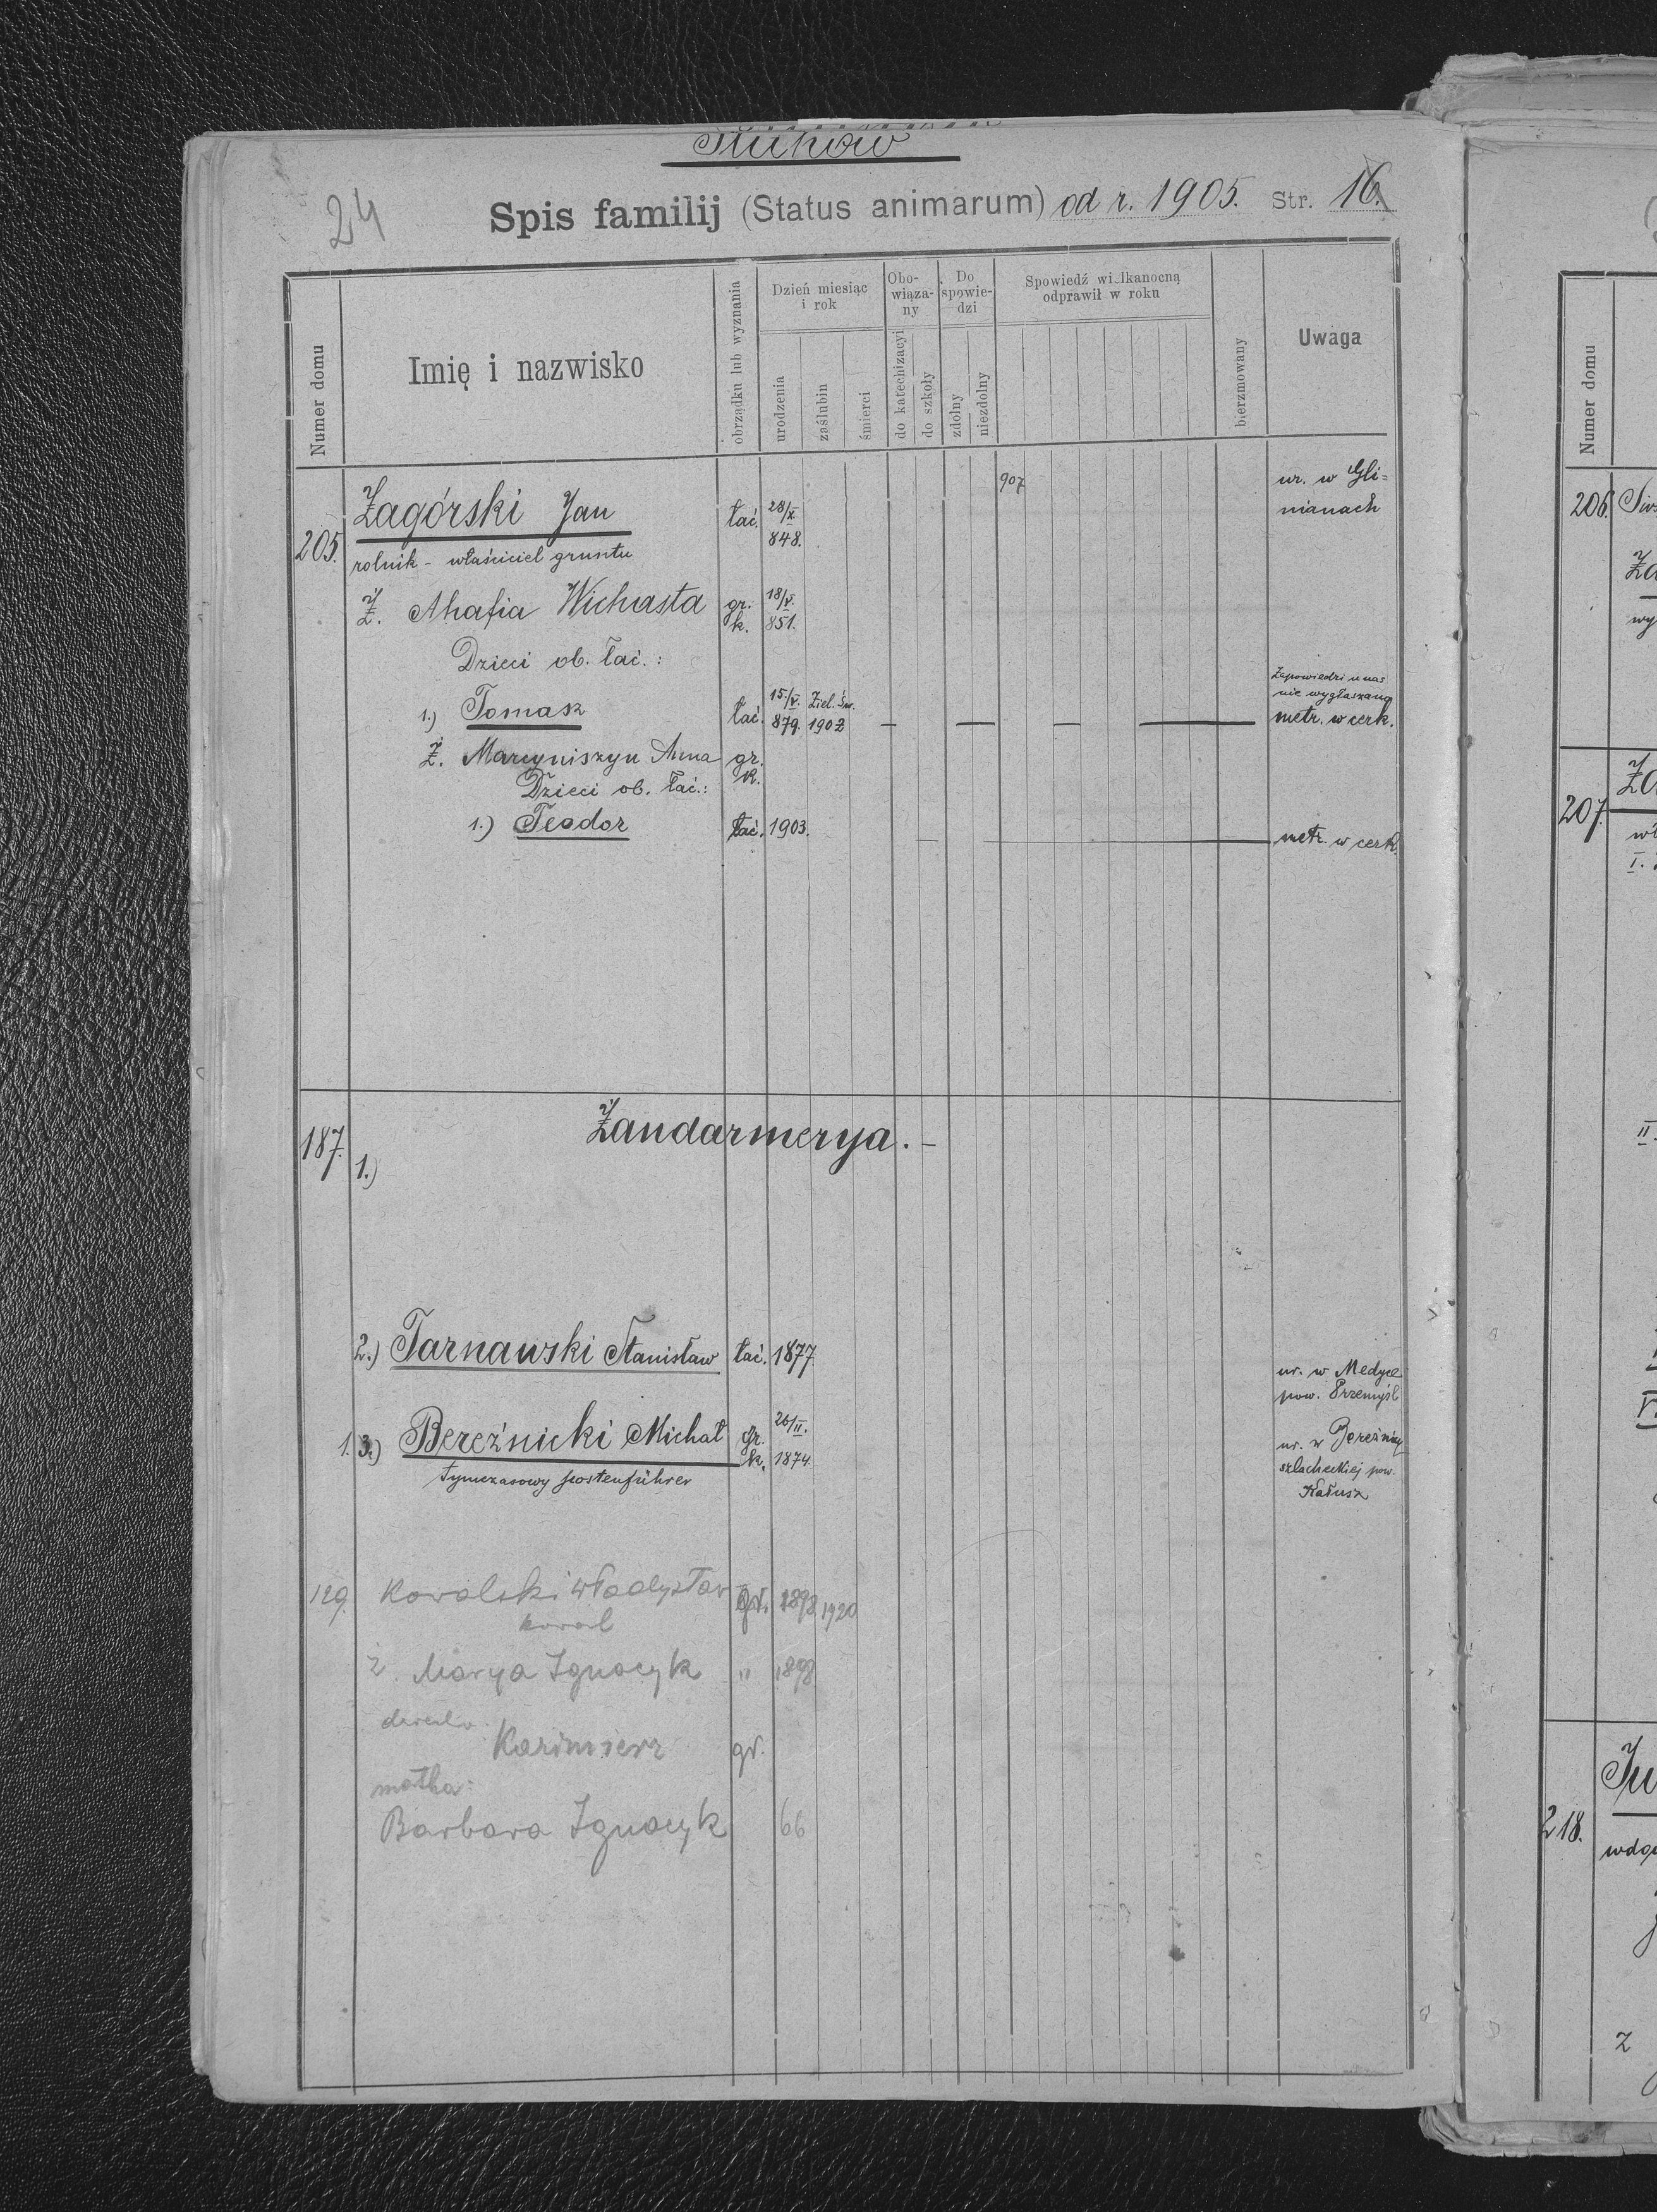 24
Spis familij (Status animarum) od r. 1905. Str. 16.
Numer domu
Imię i nazwisko
obrządku lub wyznania
Dzień miesiąc i rok
urodzenia
zaślubin
śmierci
Obo-wiąza-ny
do katechizacyi
do szkoły
Do spowie-dzi
zdolny
niezdolny
Spowiedź wielkanocną odprawił w roku
bierzmowany
Uwaga
907 ur. w Gli=
205. Zagórski Jan łać. 28/X 848. nianach
rolnik - właściciel gruntu
Ż. Ahafia Wichasta gr. k. 18/V. 851.
Dzieci ob. łać.:
Zapowiedzi u nas
nie wygłaszano
1.) Tomasz łać. 15/V. 879. Ziel. Św. 1902 metr. w cerk.
Ż. Marcyniszyn Anna gr. k.
Dzieci ob. łać.:
1.) Teodor łać. 1903. metr. w cerk.
187. Żandarmerya. -
1.)
2.) Tarnawski Stanisław łać. 1877 ur. w Medyce
pow. Przemyśl
1. 3.) Bereźnicki Michał gr. k. 20/II. 1874 ur. w Bereźnicy
tymczasowy postenführer szlacheckiej pow.
Kałusz
129. Kowalski Władysław gr. 1898 1920
kowal
ż. Marya Ignacyk " 1898
dziecko
Kazimierz gr.
matka:
Barbara Ignacyk 66
Numer domu
206.
207.
218.